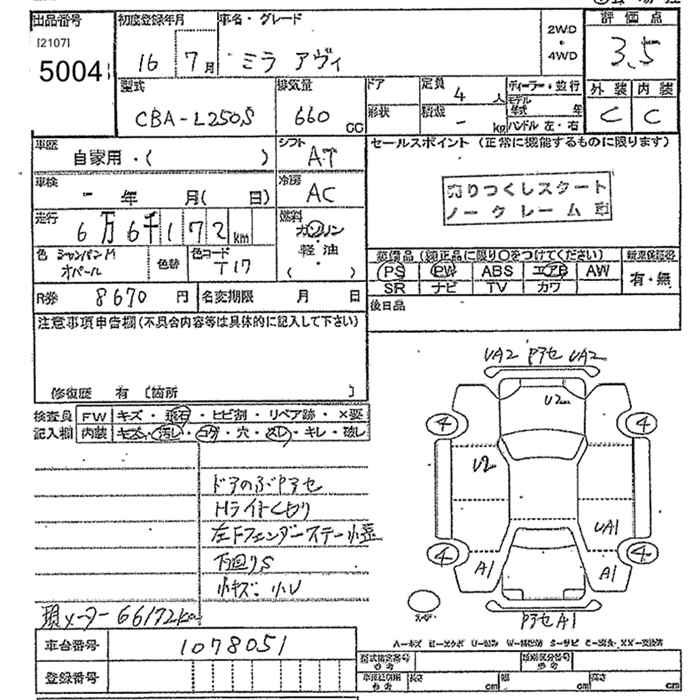 出品番号 初度登録年月 車名・グレード 評価点
[2107]
5004 16 7月 ミラ アヴィ 2WD・4WD 3.5
型式 排気量 ドア 定員 4 人 ディーラー・並行 外装 内装
CBA-L250S 660 CC 形状 積載 - kg モデル年式 年 ハンドル 左・右 C C
車歴 自家用・( ) シフト AT セールスポイント (正常に機能するものに限ります)
車検 - 年 月( 日) 冷房 AC 売りつくしスタート
ノークレーム
走行 6万6千172km 燃料 ガソリン・軽油・( )
色 シャンパンM オパール 色替 色コード T17 装備品 (純正品に限り○をつけてください) 新車保証書
PS PW ABS エアB AW 有・無
SR ナビ TV カワ
R券 8670円 名変期限 月 日 後日品
注意事項申告欄(不具合内容等は具体的に記入して下さい)
修復歴 有 [箇所 ]
検査員 FW キズ・飛石・ヒビ割・リペア跡・×要
記入欄 内装 キズ・汚レ・コゲ・穴・スレ・キレ・破レ
ドアのぶPアセ
Hライトくもり
左Fフェンダーステー
下回りS
小キズ 小U
現メーター66172km
UA2 Pアセ UA2
U2
4 4
U2
UA1
4 4
A1 A1
Pアセ A1
A-キズ
車台番号 1078051
登録番号
型式指定番号 類別区分番号
長さ cm 幅 cm 高さ cm